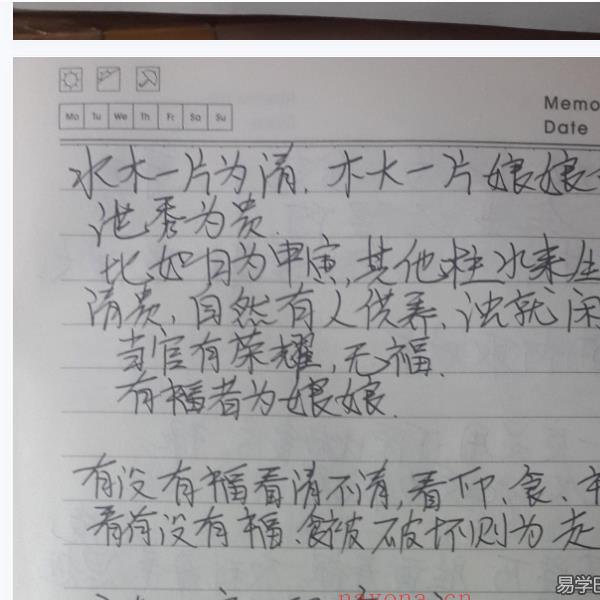 Mo Tu We Th Fr Sa Su
Memo
Date
水木一片为清.木火一片娘娘
泄秀为贵.
比如日为甲寅,其他柱水来生
清贵,自然有人供养,浊就闲
当官有荣耀,无福.
有福者为娘娘.
有没有福看清不清,看印、食、
看前没有福、食被破坏则为走
nayona.cn
易学